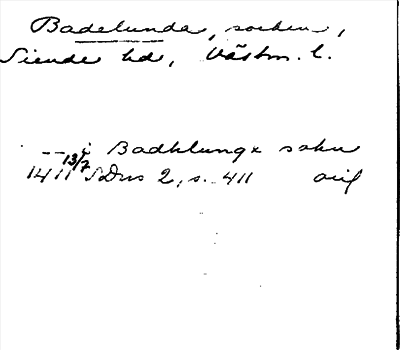 Badelunda, socken,
Siende hd, Västm. l.
-- i Badhlungx sokn
1411 13/7 SDns 2, s. 411 orig